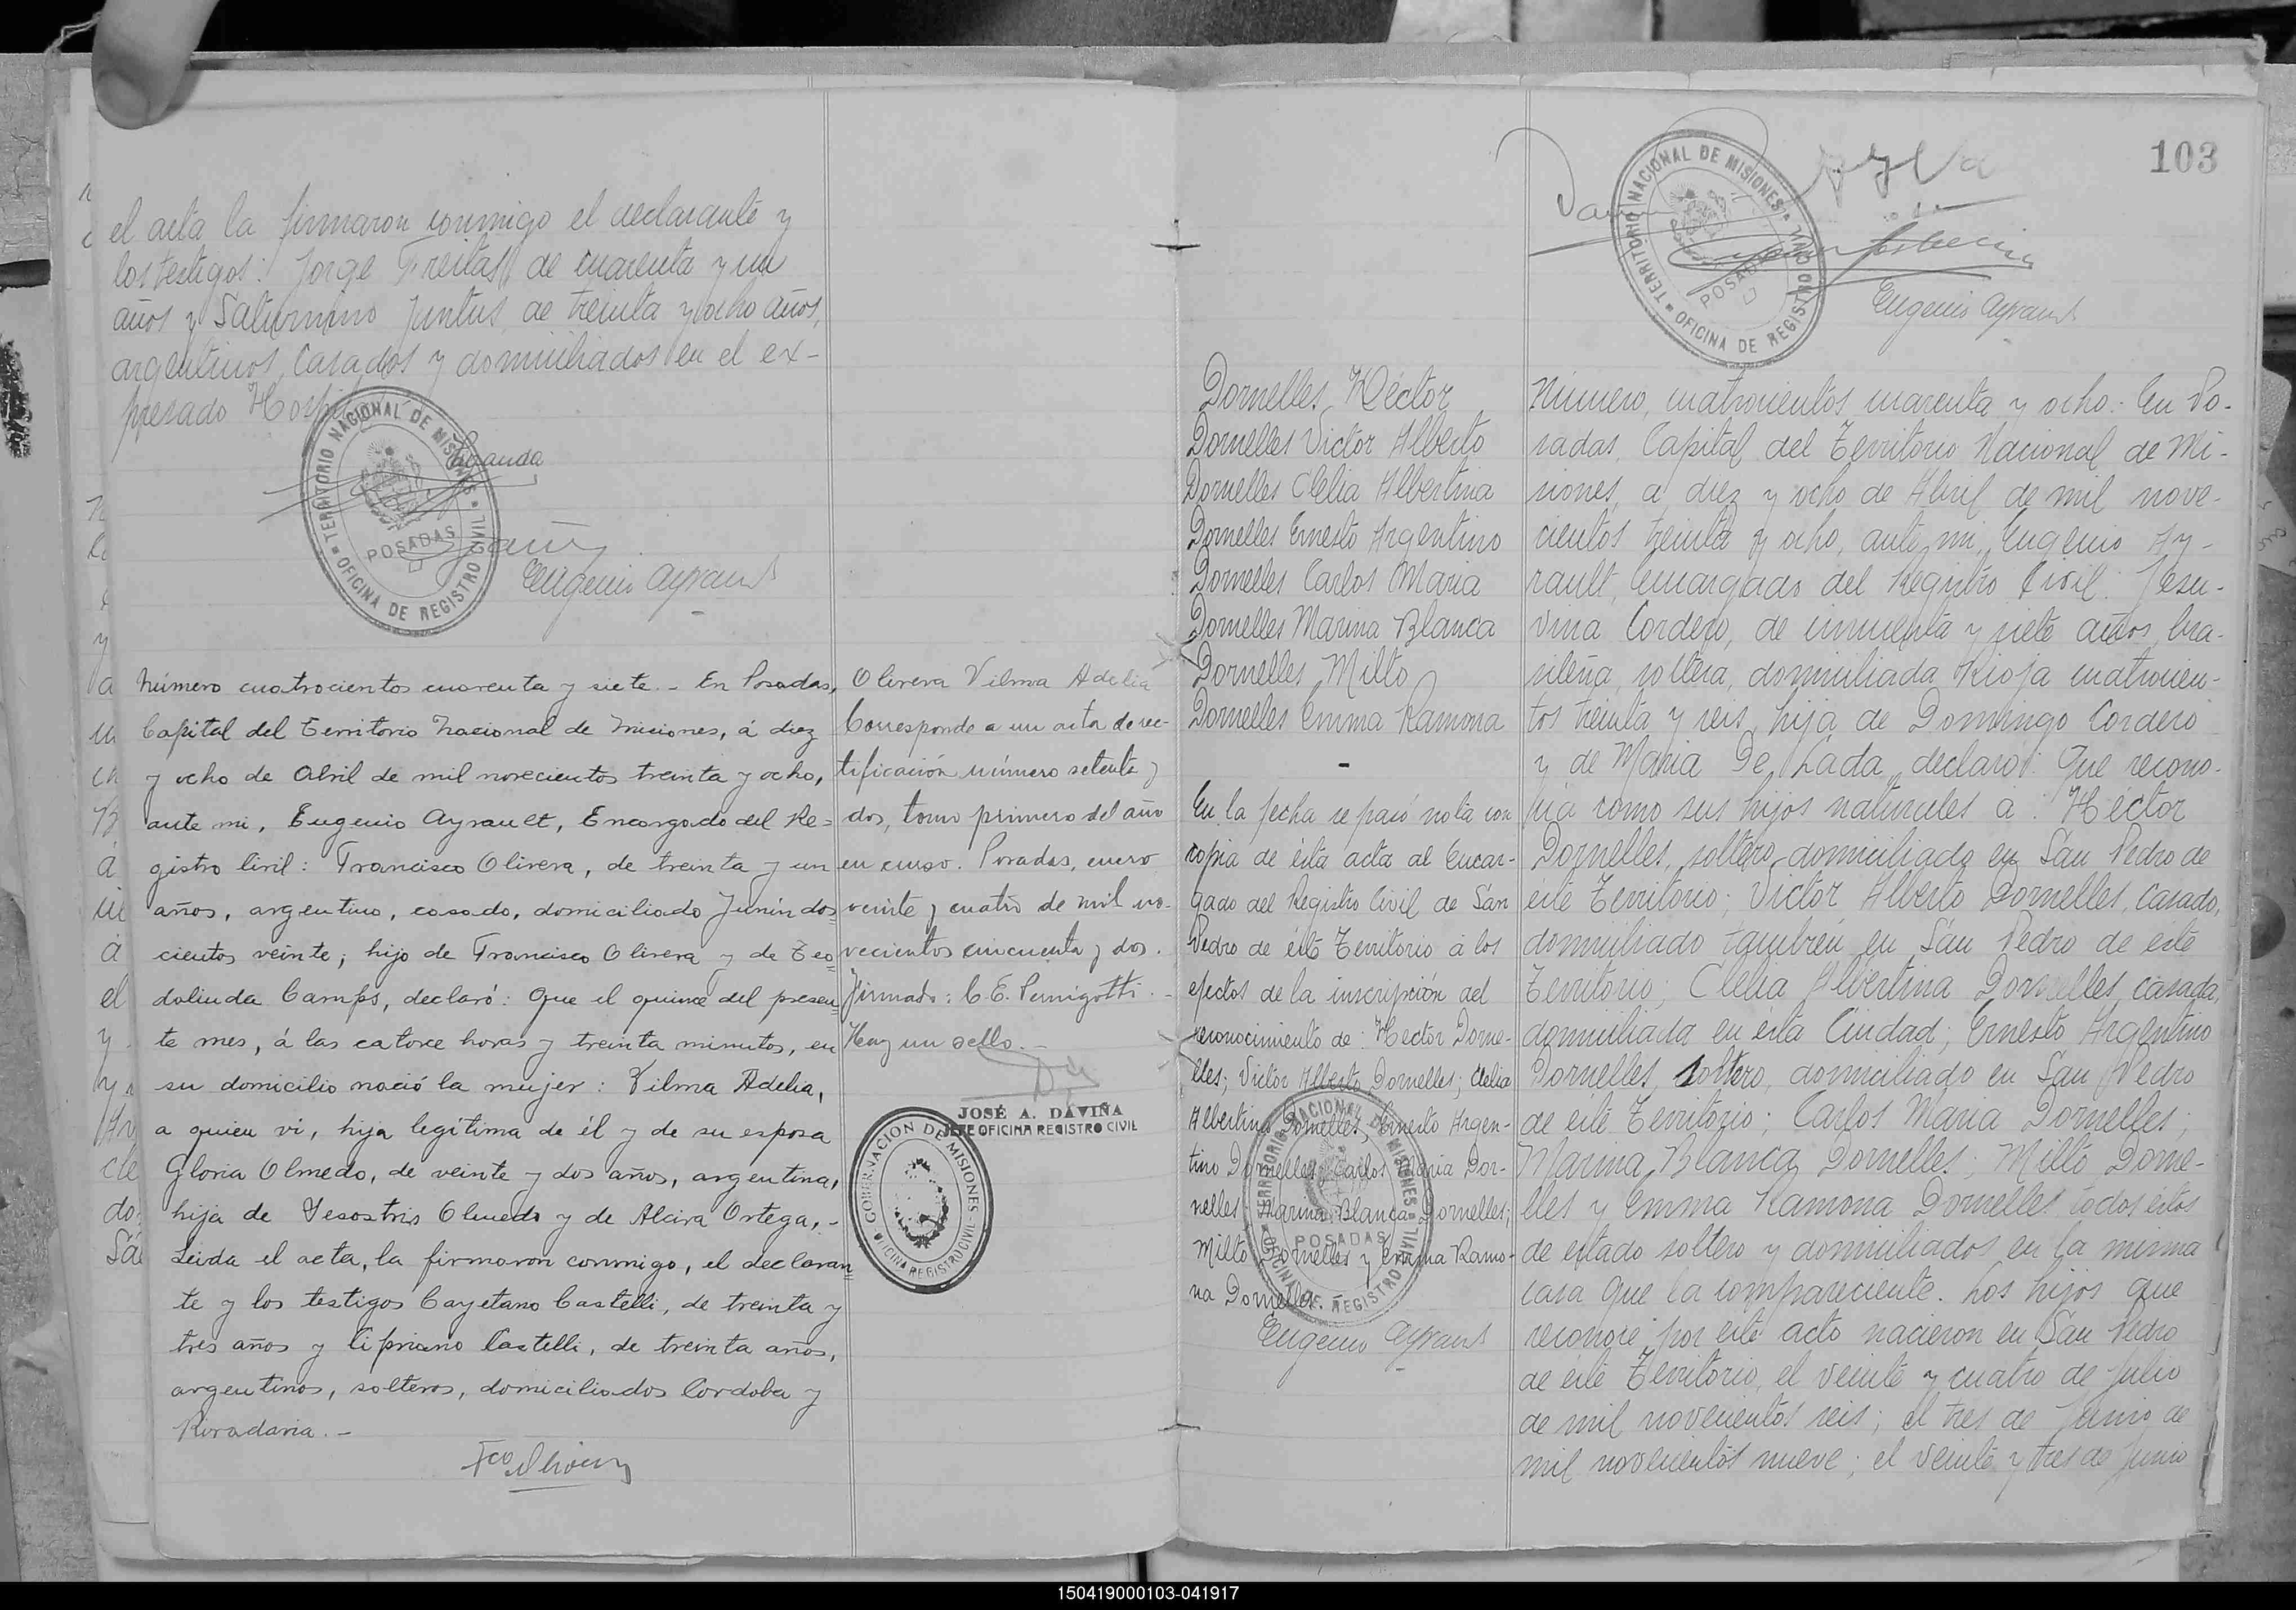 el acta la firmaron conmigo el declarante y
los testigos: Jorge Freitas, de cuarenta y un
años y Saturnino Juntus, de treinta y ocho años,
argentinos, casados y domiciliados en el ex-
presado
TERRITORIO NACIONAL DE MISIONES
POSADAS
OFICINA DE REGISTRO CIVIL
Eugenio Ayrault
Número cuatrocientos cuarenta y siete.- En Posadas,
Capital del Territorio Nacional de Misiones, á diez
y ocho de Abril de mil novecientos treinta y ocho,
ante mi, Eugenio Ayrault, Encargado del Re=
gistro Civil: Francisco Olivera, de treinta y un
años, argentino, casado, domiciliado Junín dos=
cientos veinte; hijo de Francisco Olivera y de Teo=
dolinda Camps, declaró: Que el quince del presen=
te mes, á las catorce horas y treinta minutos, en
su domicilio nació la mujer: Vilma Adelia,
a quien vi, hija legítima de él y de su esposa
Gloria Olmedo, de veinte y dos años, argentina,
hija de Sesostris Olmedo y de Alcira Ortega.-
Leida el acta, la firmaron conmigo, el declaran=
te y los testigos Cayetano Castelli, de treinta y
tres años y Cipriano Castelli, de treinta años,
argentinos, solteros, domiciliados Cordoba y
Rivadavia.-
Olivera Vilma Adelia
Corresponde a un acta de rec-
tificación número setenta y
dos, tomo primero del año
en curso. Posadas, enero
veinte y cuatro de mil no-
vecientos cincuenta y dos.
Firmado: C. E. Pernigotti.-
Hay un sello.-
JOSÉ A. DAVIÑA
JEFE OFICINA REGISTRO CIVIL
GOBERNACION DE MISIONES
OFICINA REGISTRO CIVIL
103
TERRITORIO NACIONAL DE MISIONES
POSADAS
OFICINA DE REGISTRO CIVIL
Eugenio Ayrault
Dornelles Héctor
Dornelles Victor Alberto
Dornelles Clelia Albertina
Dornelles Ernesto Argentino
Dornelles Carlos Maria
Dornelles Marina Blanca
Dornelles Milto
Dornelles Emma Ramona
-
En la fecha se pasó nota con
copia de ésta acta al Encar-
gado del Registro Civil de San
Pedro de éste Territorio á los
efectos de la inscripción del
reconocimiento de: Hector Dorne-
lles; Victor Alberto Dornelles; Clelia
Albertina Dornelles; Ernesto Argen-
tino Dornelles; Carlos Maria Dor-
nelles; Marina Blanca Dornelles;
Milto Dornelles y Emma Ramo-
na Dornelles.-
TERRITORIO NACIONAL DE MISIONES
POSADAS
OFICINA DE REGISTRO CIVIL
Eugenio Ayrault
Número, cuatrocientos cuarenta y ocho: En Po-
sadas, Capital del Territorio Nacional de Mi-
siones, a diez y ocho de Abril de mil nove-
cientos treinta y ocho, ante mi, Eugenio Ay-
rault, Encargado del Registro Civil: Jesu-
vina Cordero, de cincuenta y siete años, bra-
sileña, soltera, domiciliada Rioja cuatrocien-
tos treinta y seis, hija de Domingo Cordero
y de Maria De Lada, declaró: Que recono-
cía como sus hijos naturales á: Héctor
Dornelles, soltero, domiciliado en San Pedro de
éste Territorio; Victor Alberto Dornelles, casado,
domiciliado tambien en San Pedro de este
Territorio; Clelia Albertina Dornelles, casada,
domiciliada en ésta Ciudad; Ernesto Argentino
Dornelles, soltero, domiciliado en San Pedro
de éste Territorio; Carlos Maria Dornelles;
Marina Blanca Dornelles; Milto Dorne-
lles y Emma Ramona Dornelles, todos éstos
de estado soltero y domiciliados en la misma
casa que la compareciente. Los hijos que
reconoce por éste acto nacieron en San Pedro
de éste Territorio, el veinte y cuatro de Julio
de mil novecientos seis; el tres de Junio de
mil novecientos nueve; el veinte y tres de Junio
150419000103-041917